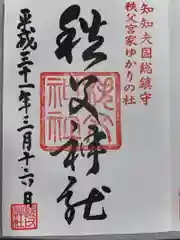 知知夫国総鎮守
秩父宮家ゆかりの社
秩父神社
平成三十一年二月十六日